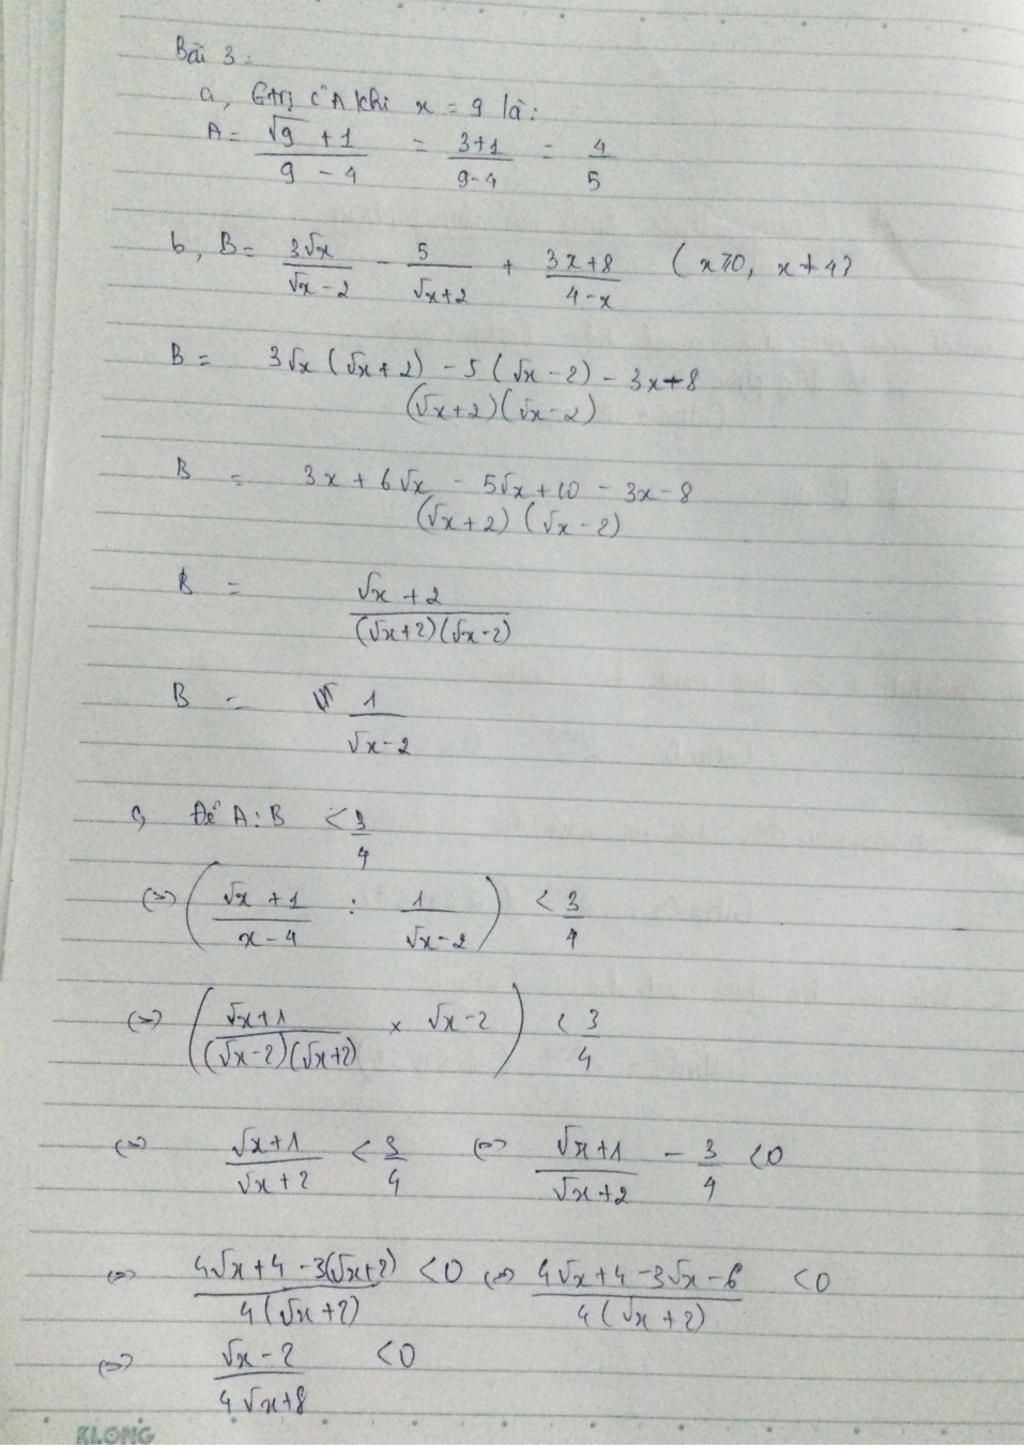 Bài 3:
a, Gtrị c° A khi x = 9 là:
A = (√9 + 1)/(9 - 4) = (3+1)/(9-4) = 4/5
b, B = 3√x/(√x - 2) - 5/(√x+2) + (3x+8)/(4-x) ( x≥0, x≠4)
B = (3√x (√x + 2) - 5 (√x - 2) - 3x+8)/((√x+2)(√x-2))
B = (3x + 6√x - 5√x + 10 - 3x - 8)/((√x+2) (√x - 2))
B = (√x + 2)/((√x+2)(√x-2))
B = 1/(√x-2)
c, Để A : B < 3/4
(=) ((√x + 1)/(x - 4) : 1/(√x-2)) < 3/4
(=) ((√x+1)/((√x-2)(√x+2)) × √x-2) < 3/4
(=) (√x+1)/(√x+2) < 3/4 (=) (√x+1)/(√x+2) - 3/4 <0
(=) (4√x+4 -3(√x+2))/(4(√x+2)) <0 (=) (4√x+4 -3√x-6)/(4(√x+2)) <0
(=) (√x-2)/(4√x+8) <0
KLONG